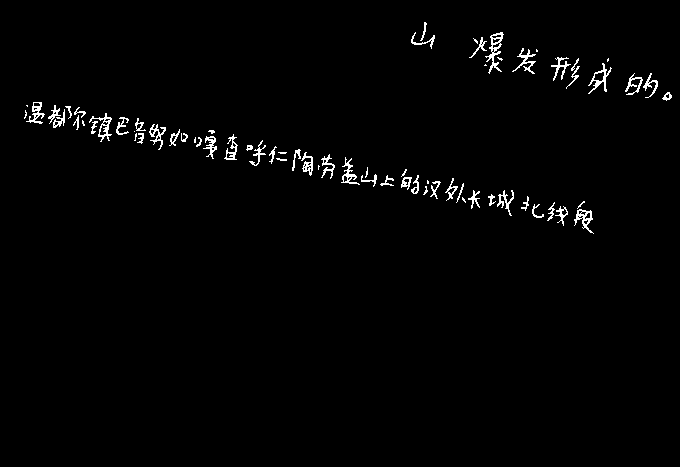 山 爆发形成的。
温都尔镇巴音努如嘎查呼仁陶劳盖山上的汉外长城北线段